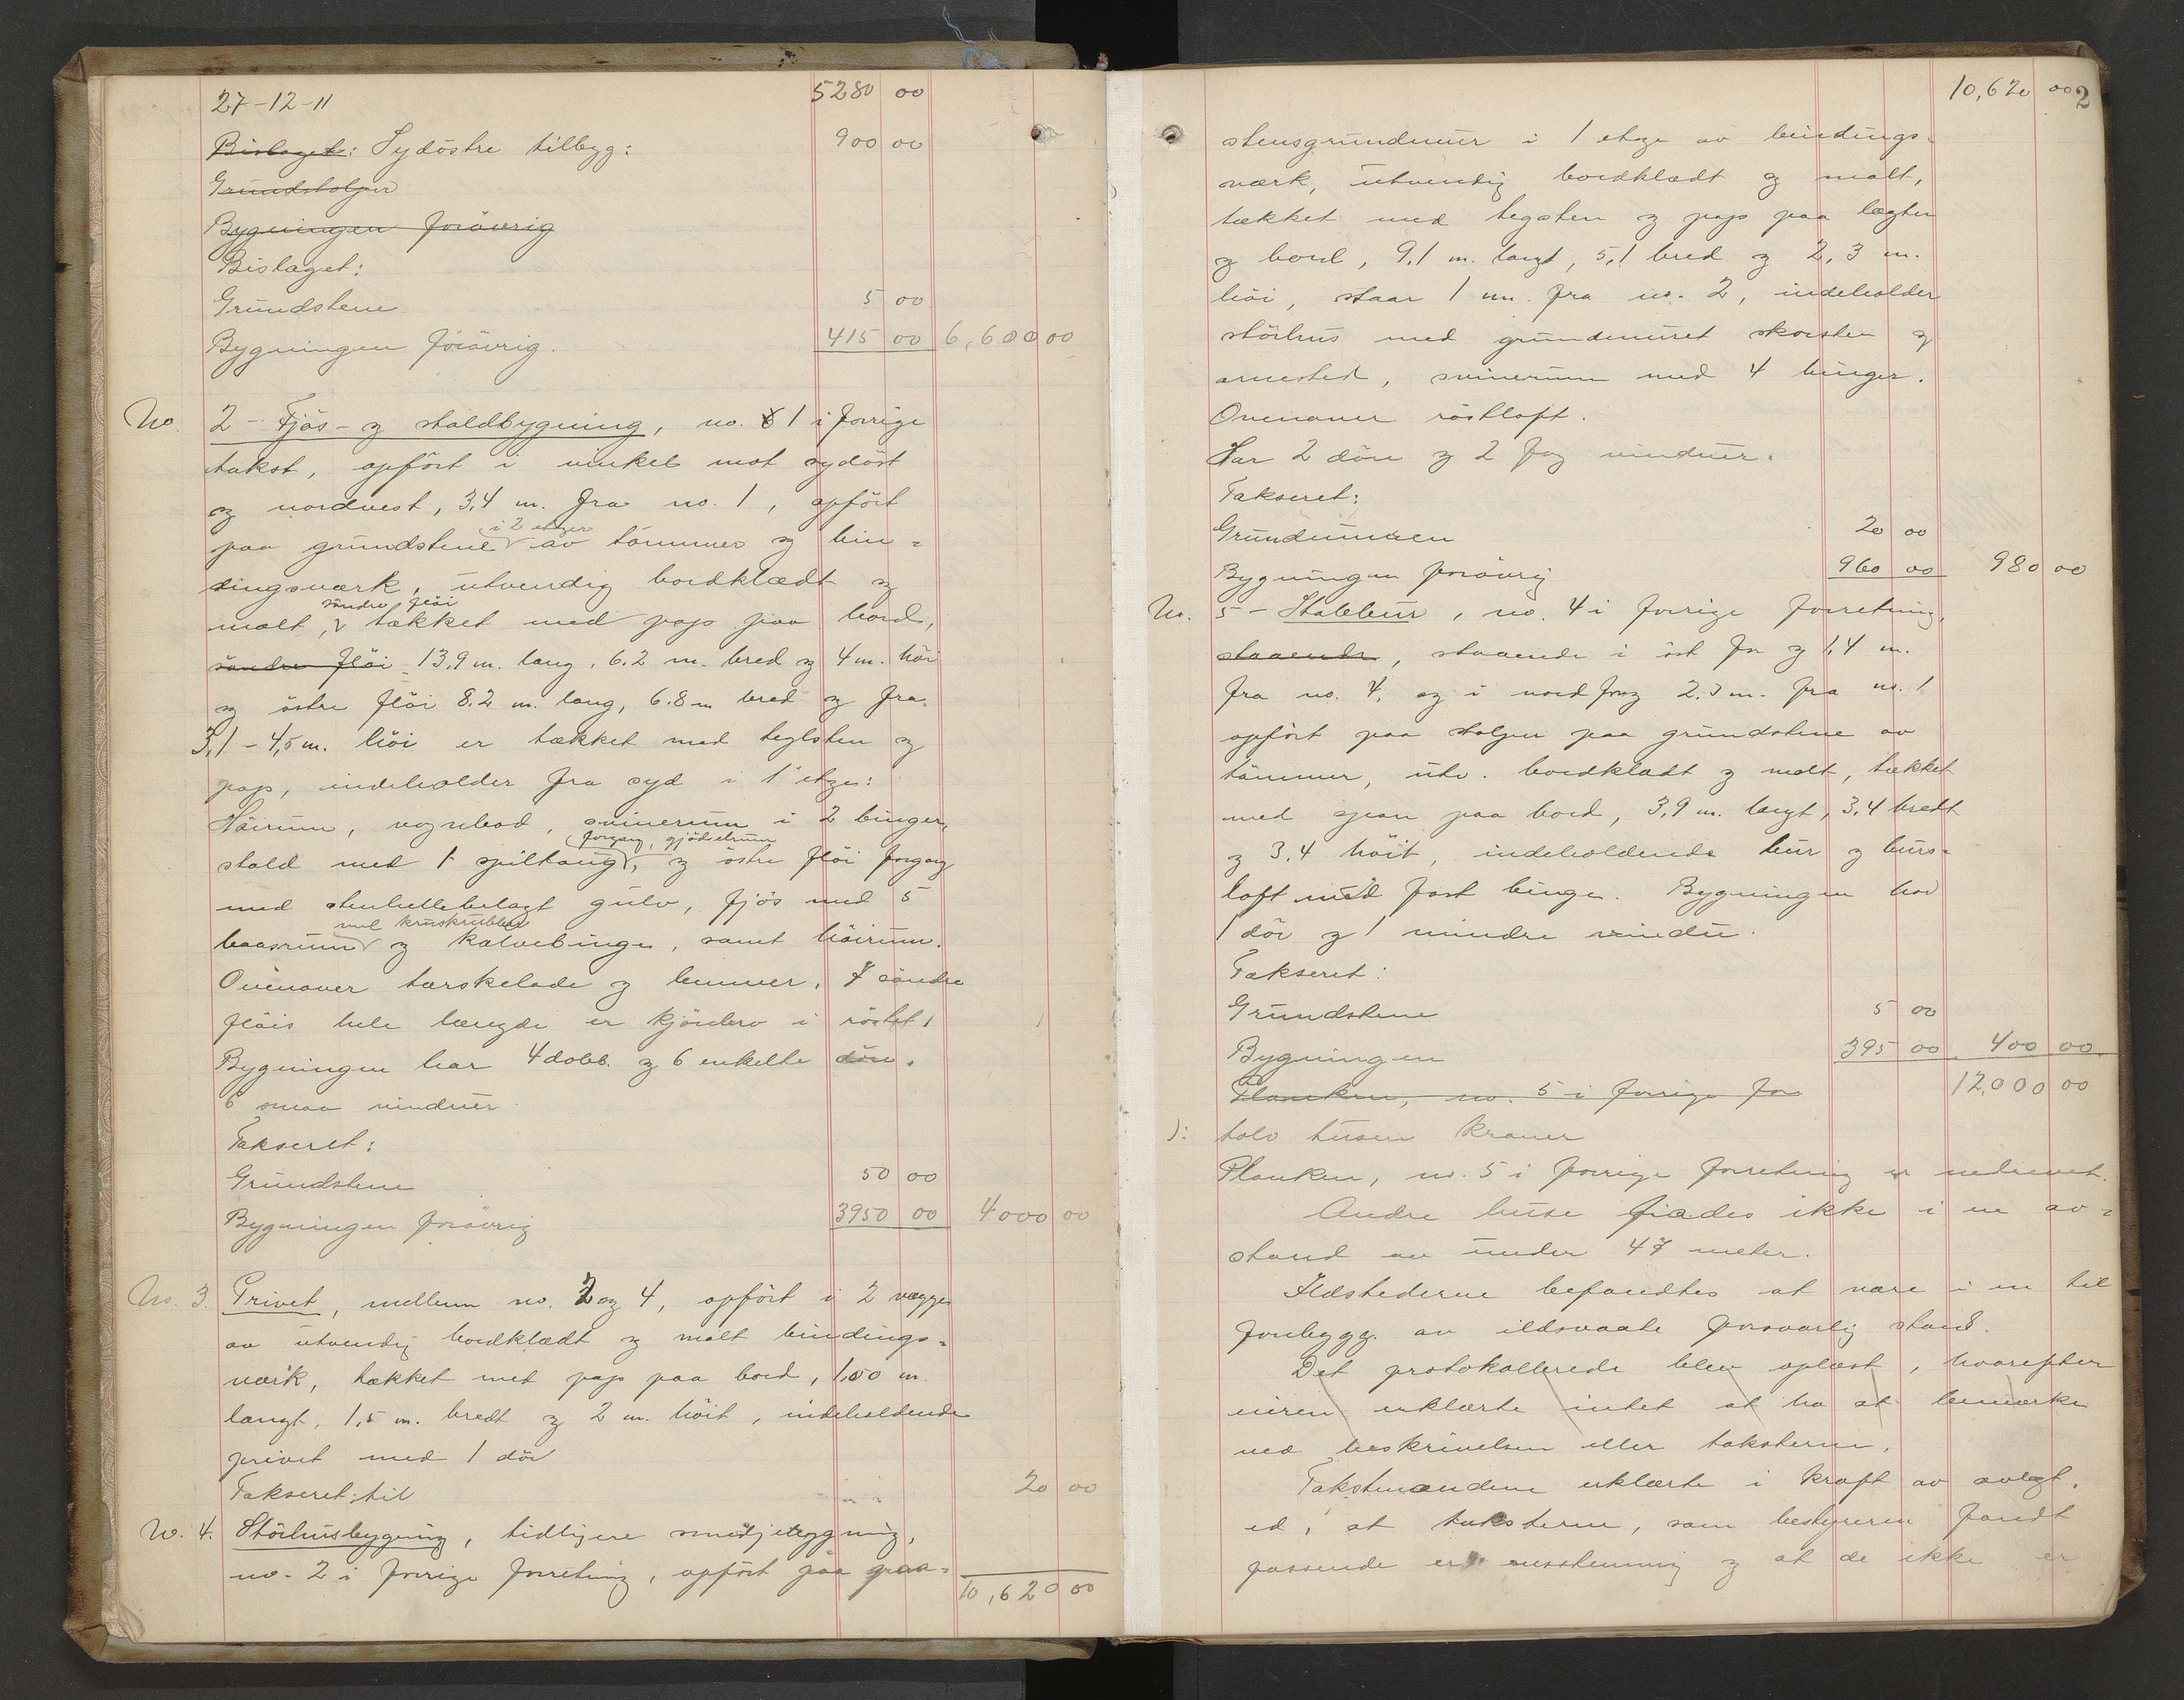 27-12-11 5280 00
Bislaget: Sydöstre tilbyg: 900 00
Grundstolper
Bygningen forövrig
Bislaget:
Grundstene 5 00
Bygningen forövrig. 415 00 6,600 00
No. 2 - Fjös- og staldbygning, no. 1 i forrige
takst, opfört i vinkel mot sydöst
og nordvest, 3,4 m. fra no. 1, opfört
i 2 etager
paa grundstene av tömmer og bin=
dingsværk, utvendig bordklædt og
söndre flöi
malt, tækket med pap paa bord,
söndre flöi 13,9 m. lang, 6.2 m. bred og 4 m. höi
og östre flöi 8.2 m. lang, 6.8 m bred og fra
3,1 - 4,5 m. höi er tækket med teglsten og
pap, indeholder fra syd i 1 etage:
Höirum, vognbod, svinerum i 2 binger,
forgang, gjödselrum
stald med 1 spiltaug, og östre flöi forgang
med stenhellebelagt gulv, fjös med 5
med kruskrubber
baasrum og kalvebinge, samt höirum.
Ovenover tærskelade og lemmer, I söndre
flöis hele længde er kjörebro i röstet,
Bygningen har 4 dobb. og 6 enkelte döre,
6 smaa vinduer
Takseret:
Grundstene 50 00
Bygningen forövrig 3950 00 4000 00
No. 3. Privet, mellem no. 2 og 4, opfört i 2 vægge
av utvendig bordklædt og malt bindings=
værk, tækket med pap paa bord, 1,00 m.
langt, 1,5 m. bredt og 2 m. höit, indeholdende
privet med 1 dör
Takseret til 20 00
No. 4. Störhusbygning, tidligere smedjebygning,
no. 2 i forrige forretning, opfört paa graa=
10,620 00
10,620 00 2
stensgrundmur i 1 etage av bindings-
værk, utvendig bordklædt og malt,
tækket med tegsten og pap paa lægter
og bord, 9,1 m. langt, 5,1 bred og 2,3 m.
höi, staar 1 m. fra no. 2, indeholder
störhus med grundmuret skorsten og
arnested, svinerum med 4 binger.
Ovenover röstloft.
Har 2 döre og 2 fag vinduer.
Takseret:
Grundmuren 20 00
Bygningen forövrig 960 00 980 00
No. 5 - Stabbur, no. 4 i forrige forretning,
staaende, staaende i öst for og 1,4 m.
fra no. 4, og i nord for og 2.3 m. fra no. 1
opfört paa stolper paa grundstene av
tömmer, utv. bordklædt og malt, tækket
med spon paa bord, 3,9 m. langt, 3,4 bredt
og 3.4 höit, indeholdende bur og burs=
loft med fast binge. Bygningen har
1 dör og 1 mindre vindu.
Takseret:
Grundstene 5 00
Bygningen 395 00 400 00
Planken, no. 5 i forrige for 12,000 00
): tolv tusen kroner
Planken, no. 5 i forrige forretning er nedrevet.
Andre huse findes ikke i en av=
stand av under 47 meter.
Ildstederne befandtes at være i en til
forebygg. av ildsvaade forsvarlig stand.
Det protokollerede blev oplæst, hvorefter
eieren erklærte intet at ha at bemærke
ved beskrivelsen eller taksterne.
Takstmændene erklærte i kraft av avlagt
ed, at taksterne, som bestyreren fandt
passende er og at de ikke er